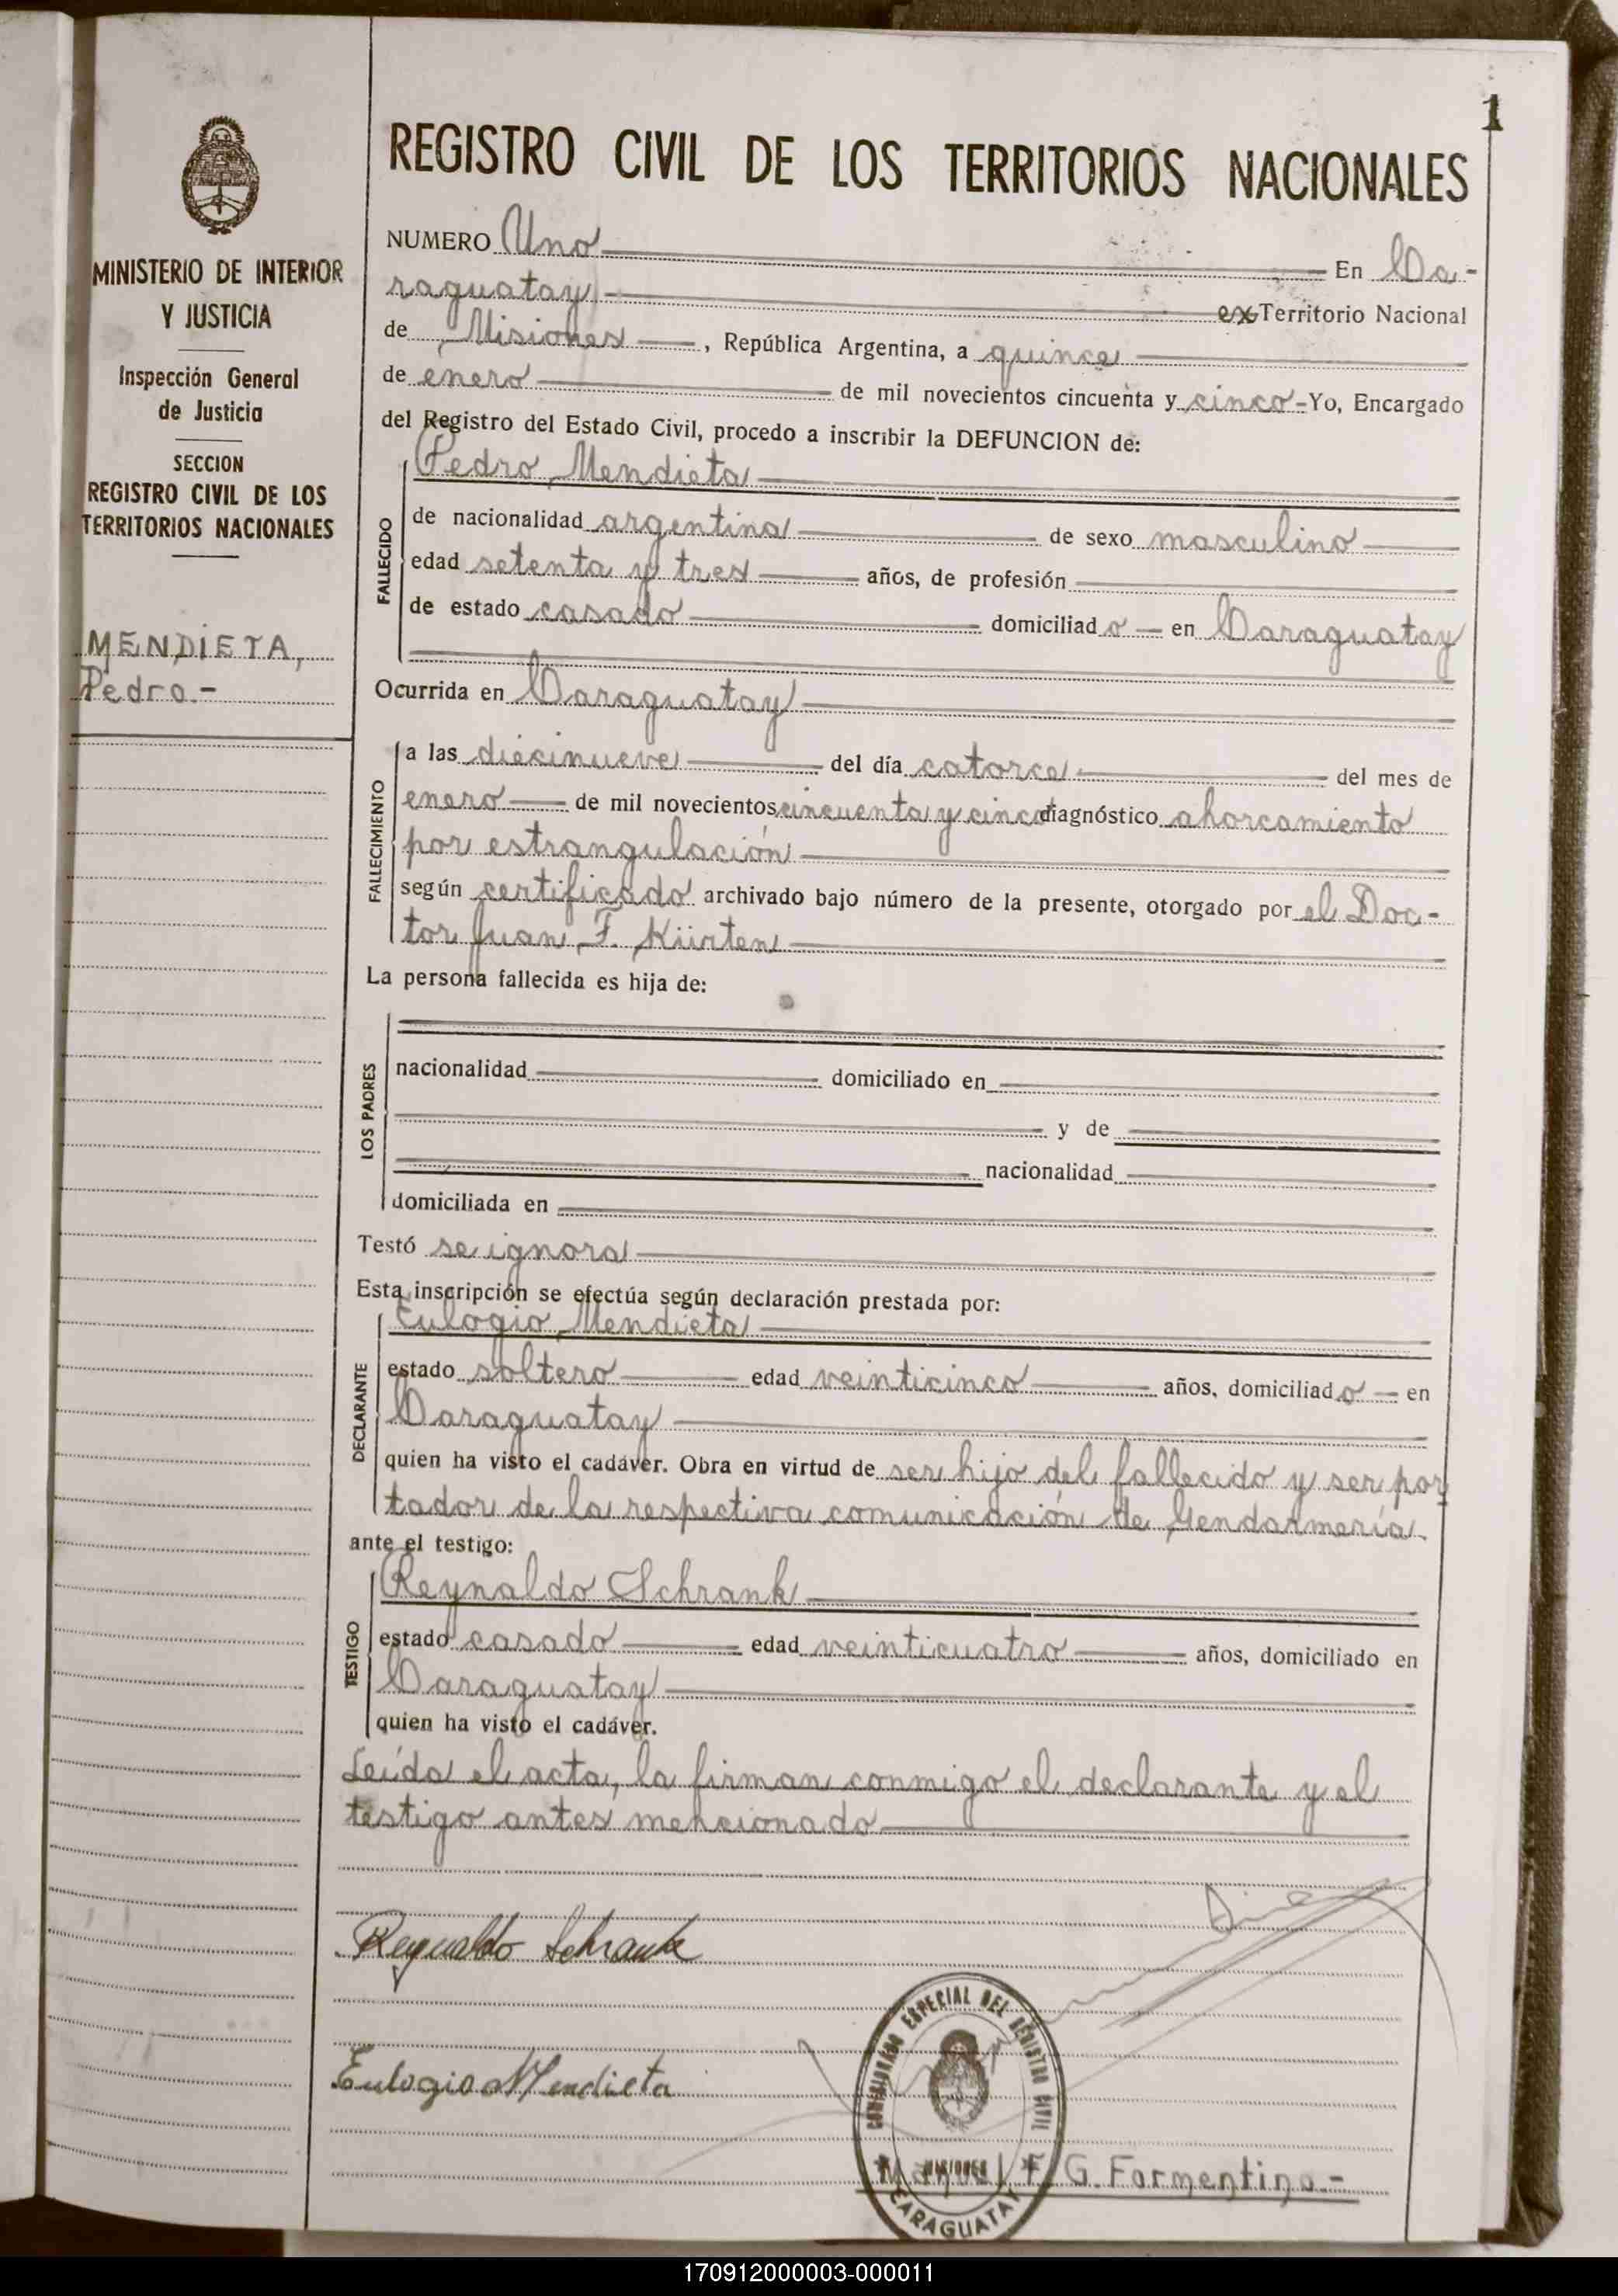 1
MINISTERIO DE INTERIOR
Y JUSTICIA
Inspección General
de Justicia
SECCION
REGISTRO CIVIL DE LOS
TERRITORIOS NACIONALES
MENDIETA,
Pedro.-
REGISTRO CIVIL DE LOS TERRITORIOS NACIONALES
NUMERO Uno En Ca-
raguatay ex Territorio Nacional
de Misiones, República Argentina, a quince
de enero de mil novecientos cincuenta y cinco-Yo, Encargado
del Registro del Estado Civil, procedo a inscribir la DEFUNCION de:
Pedro Mendieta
FALLECIDO
de nacionalidad argentina de sexo masculino
edad setenta y tres años, de profesión
de estado casado domiciliado en Caraguatay
Ocurrida en Caraguatay
FALLECIMIENTO
a las diecinueve del día catorce del mes de
enero de mil novecientos cincuenta y cinco diagnóstico ahorcamiento
por estrangulación
según certificado archivado bajo número de la presente, otorgado por el Doc-
tor Juan F. Kürten
La persona fallecida es hija de:
LOS PADRES
nacionalidad domiciliado en
y de
nacionalidad
domiciliada en
Testó se ignora
Esta inscripción se efectúa según declaración prestada por:
Eulogio Mendieta
DECLARANTE
estado soltero edad veinticinco años, domiciliado en
Caraguatay
quien ha visto el cadáver. Obra en virtud de ser hijo del fallecido y ser por
tador de la respectiva comunicación de Gendarmería.
ante el testigo:
Reynaldo Schrank
TESTIGO
estado casado edad veinticuatro años, domiciliado en
Caraguatay
quien ha visto el cadáver.
Leída el acta, la firman conmigo el declarante y el
testigo antes mencionado
Reynaldo Schrank
Eulogio Mendieta
ESPECIAL DEL REGISTRO CIVIL
MISIONES
CARAGUATAY
Manuel F. G. Formentino.-
170912000003-000011